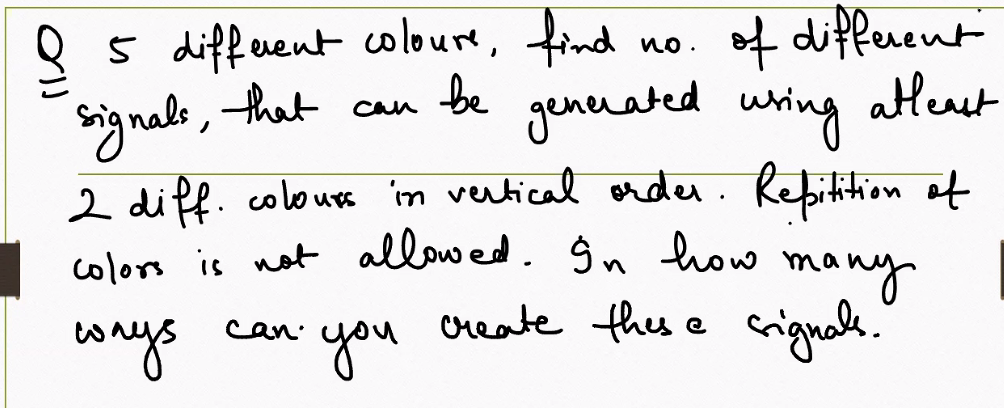 Q 5 different colours, find no. of different
signals, that can be generated using atleast
2 diff. colours in vertical order. Repitition of
colors is not allowed. In how many
ways can you create these signals.